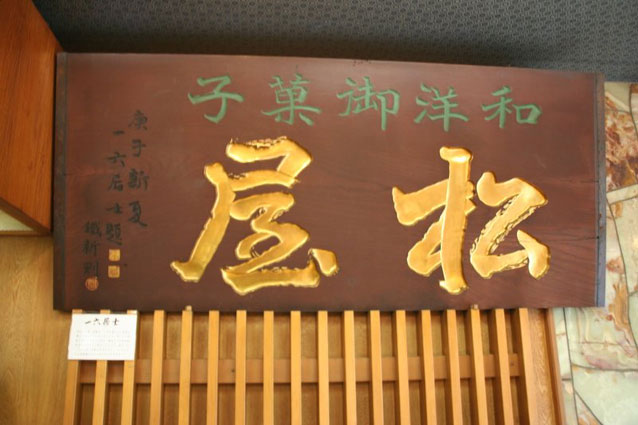 和洋御菓子
松屋
庚子新夏
一六居士題
鐵斩刻
一六居士